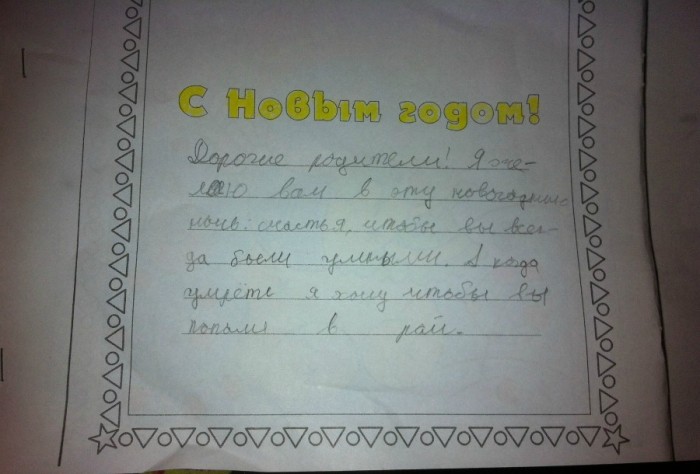 С Новым годом!
Дорогие родители! Я же-
лаю вам в эту новогоднюю
ночь: счастья, чтобы вы всег-
да были умными. А когда
умрёте я хочу чтобы вы
попали в рай.